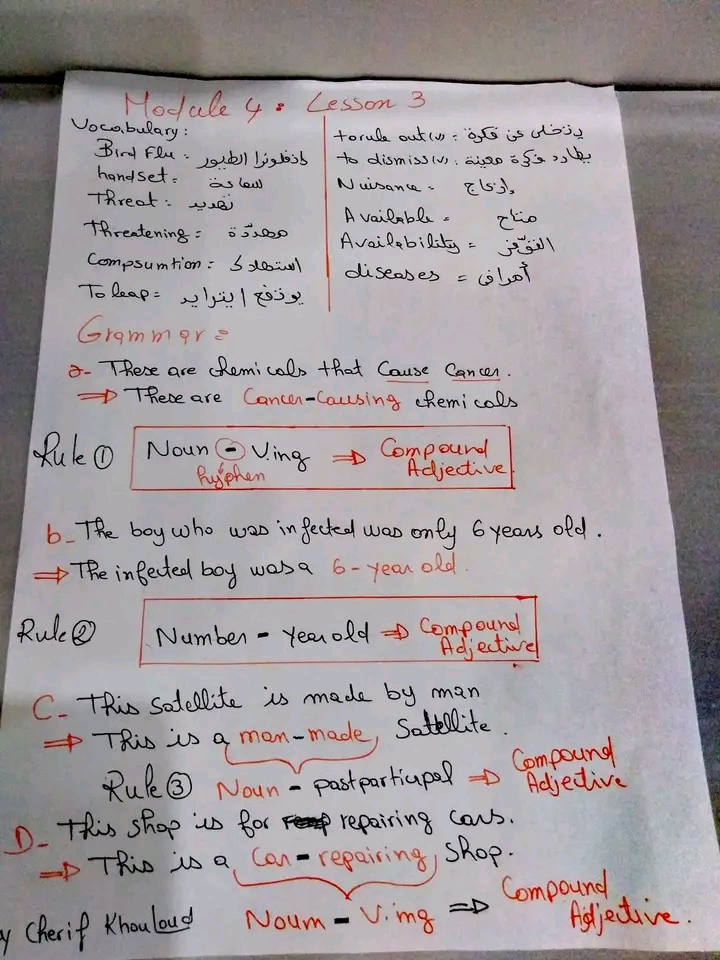 Module 4: Lesson 3
Vocabulary:
Bird Flu: انفلونزا الطيور
handset: سماعة
Threat: تهديد
Threatening: مهددّة
Compsumtion: استهلاك
To leap= يندفع / يتزايد
to rule out (v): يتخلى عن فكرة
to dismiss (v): يطارد فكرة معينة
Nuisance = إزعاج
Available = متاح
Availability = التوّفر
diseases = أمراض
Grammar:
a- These are chemicals that Cause Cancer.
⇒ These are Cancer-Causing chemicals
Rule ① Noun - V.ing ⇒ Compound Adjective
hyphen
b- The boy who was infected was only 6 years old.
⇒ The infected boy was a 6-year old.
Rule ② Number - year old ⇒ Compound Adjective
C- This Satellite is made by man
⇒ This is a man-made Satellite.
Rule ③ Noun - past participal ⇒ Compound Adjective
D- This shop is for repairing cars.
⇒ This is a Car-repairing Shop.
Noun - V.ing ⇒ Compound Adjective.
y Cherif Khouloud